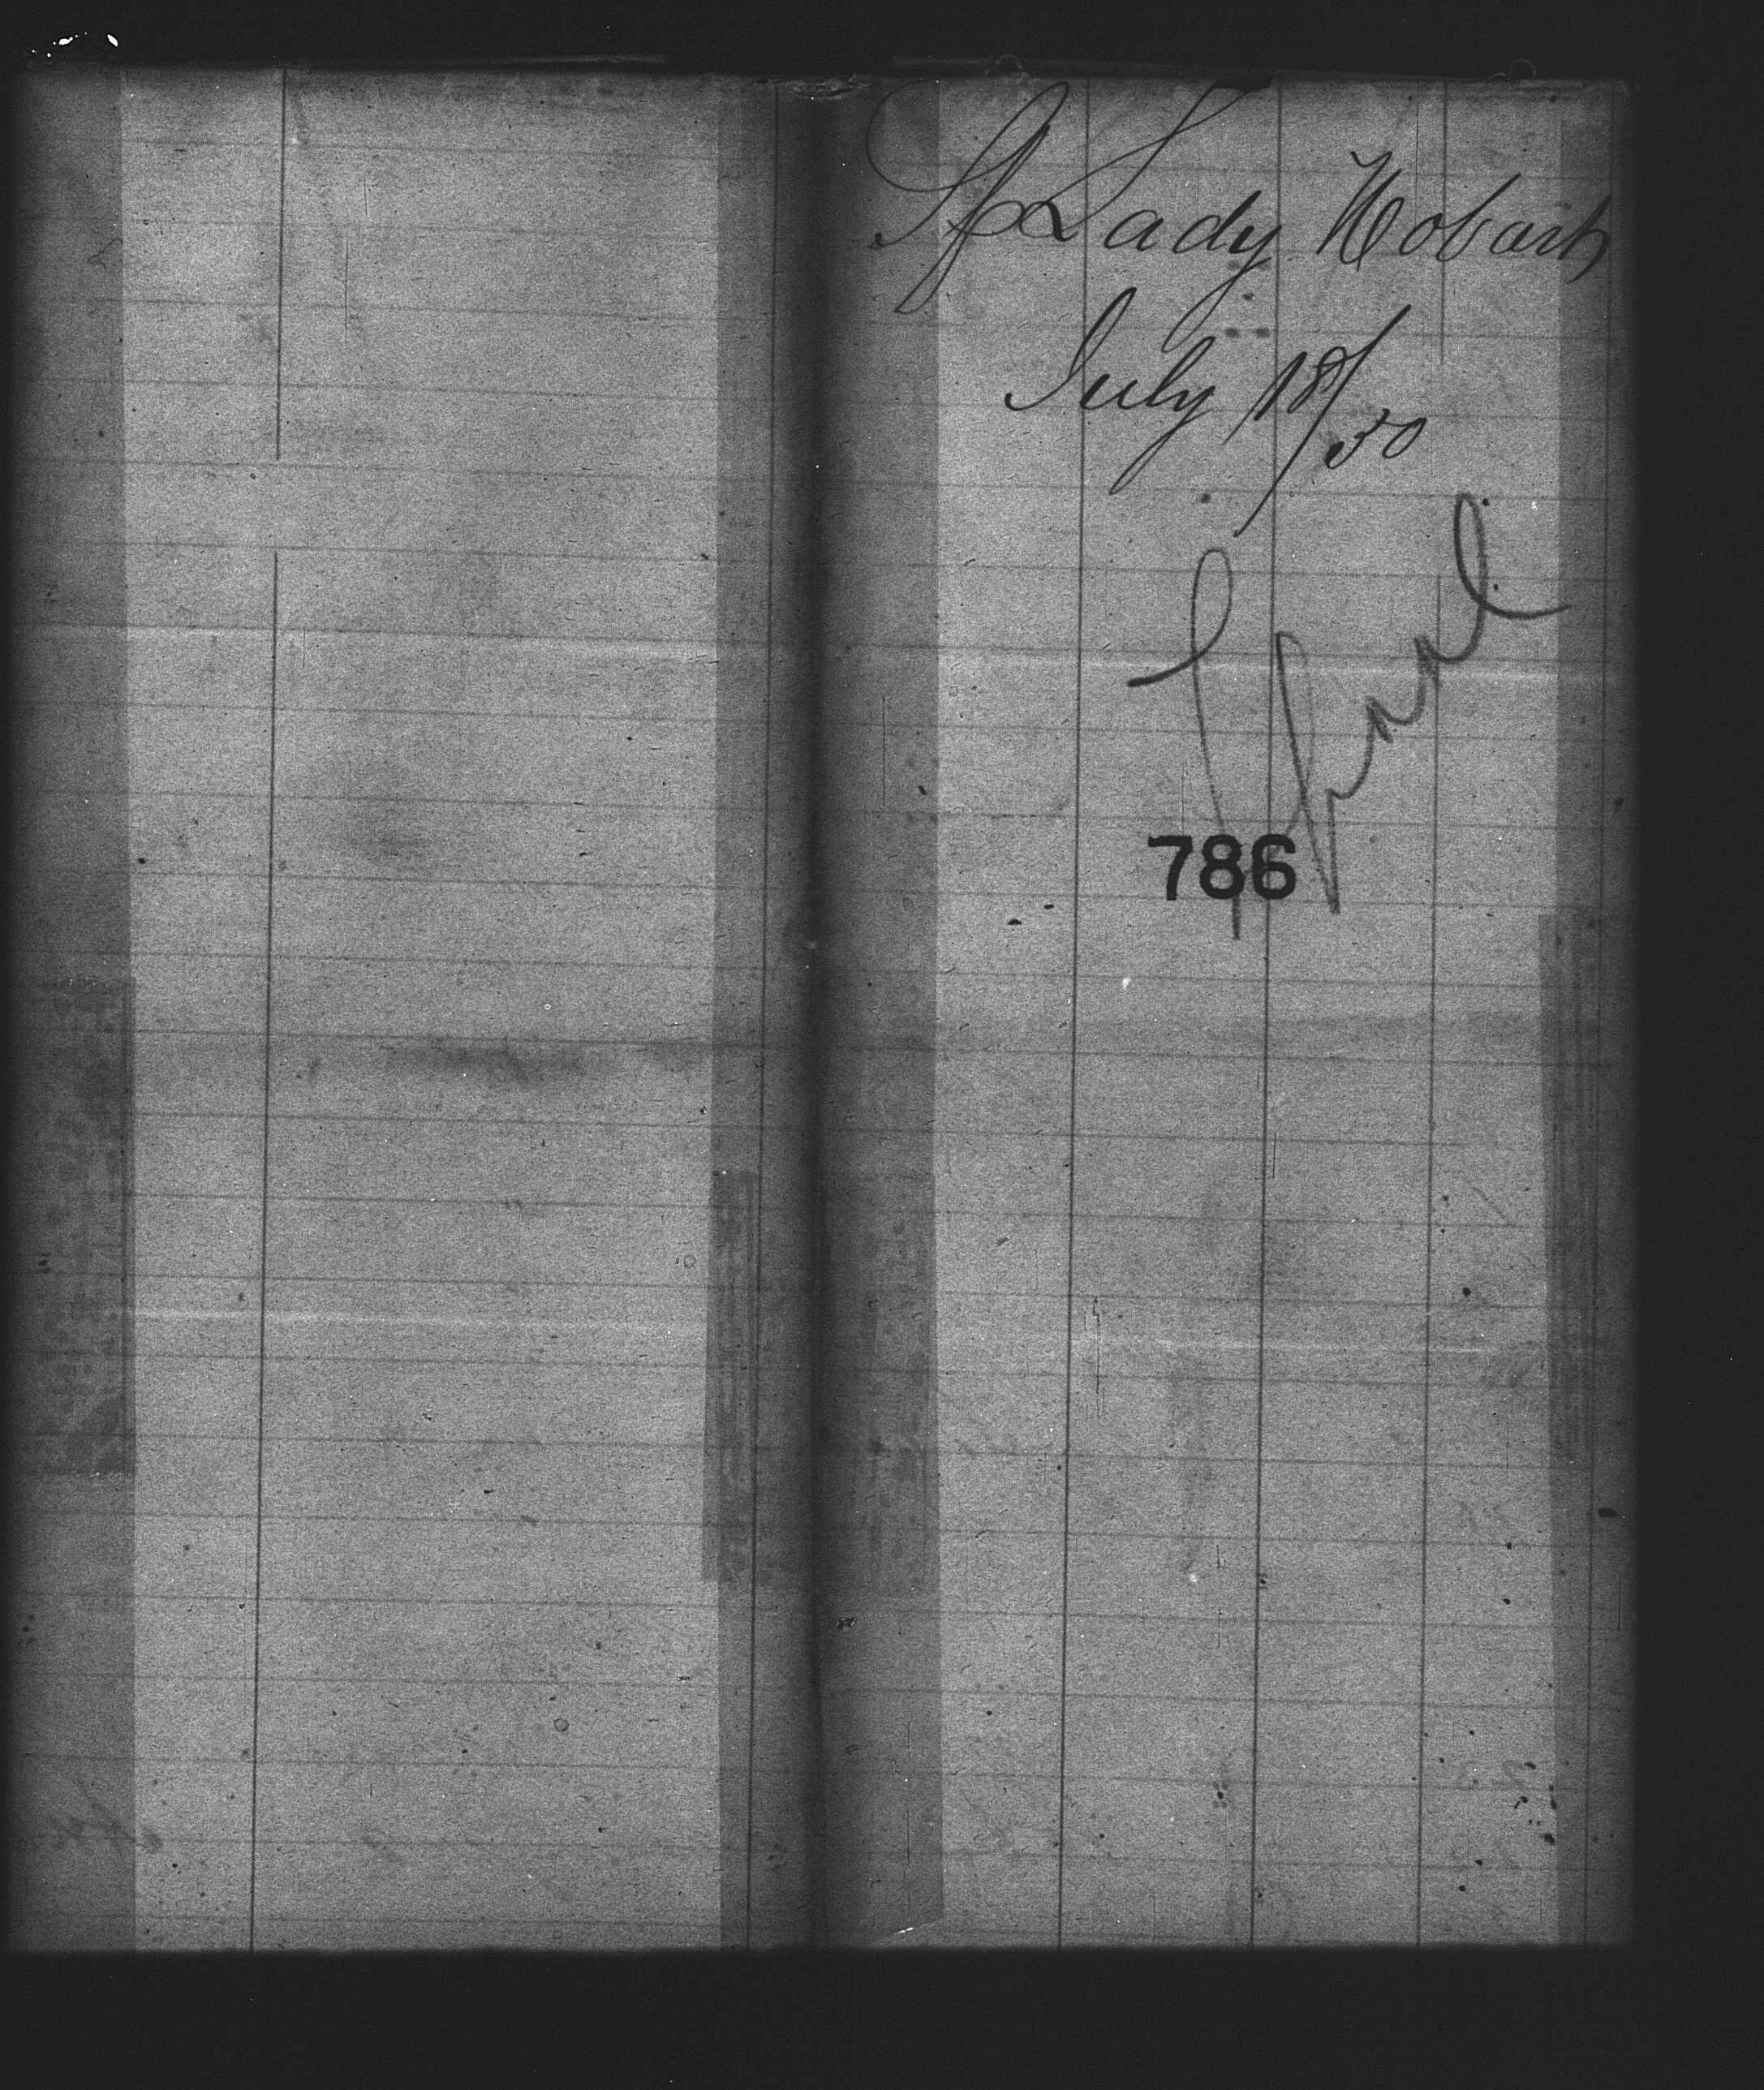 Sp Lady Hobart
July 18/50
786